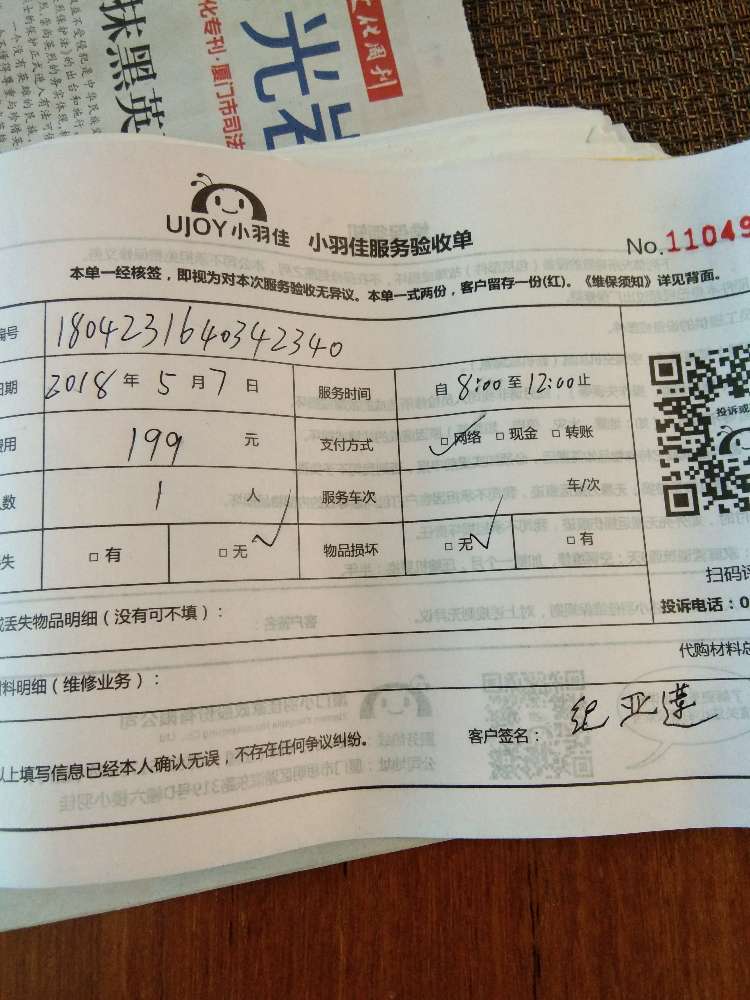 文化周刊
光
抹黑英
化专刊·厦门市司法
UJOY小羽佳 小羽佳服务验收单
No.11049
本单一经核签，即视为对本次服务验收无异议。本单一式两份，客户留存一份(红)。《维保须知》详见背面。
编号 1804231640342340
日期 2018 年 5 月 7 日 服务时间 自 8:00 至 12:00 止
费用 199 元 支付方式 □网络 □现金 □转账
人数 1 人 服务车次 车/次
失 □有 □无 物品损坏 □无 □有
投诉或
扫码评
投诉电话：0
或丢失物品明细（没有可不填）：
代购材料总
材料明细（维修业务）：
以上填写信息已经本人确认无误，不存在任何争议纠纷。
客户签名： 纪亚莲